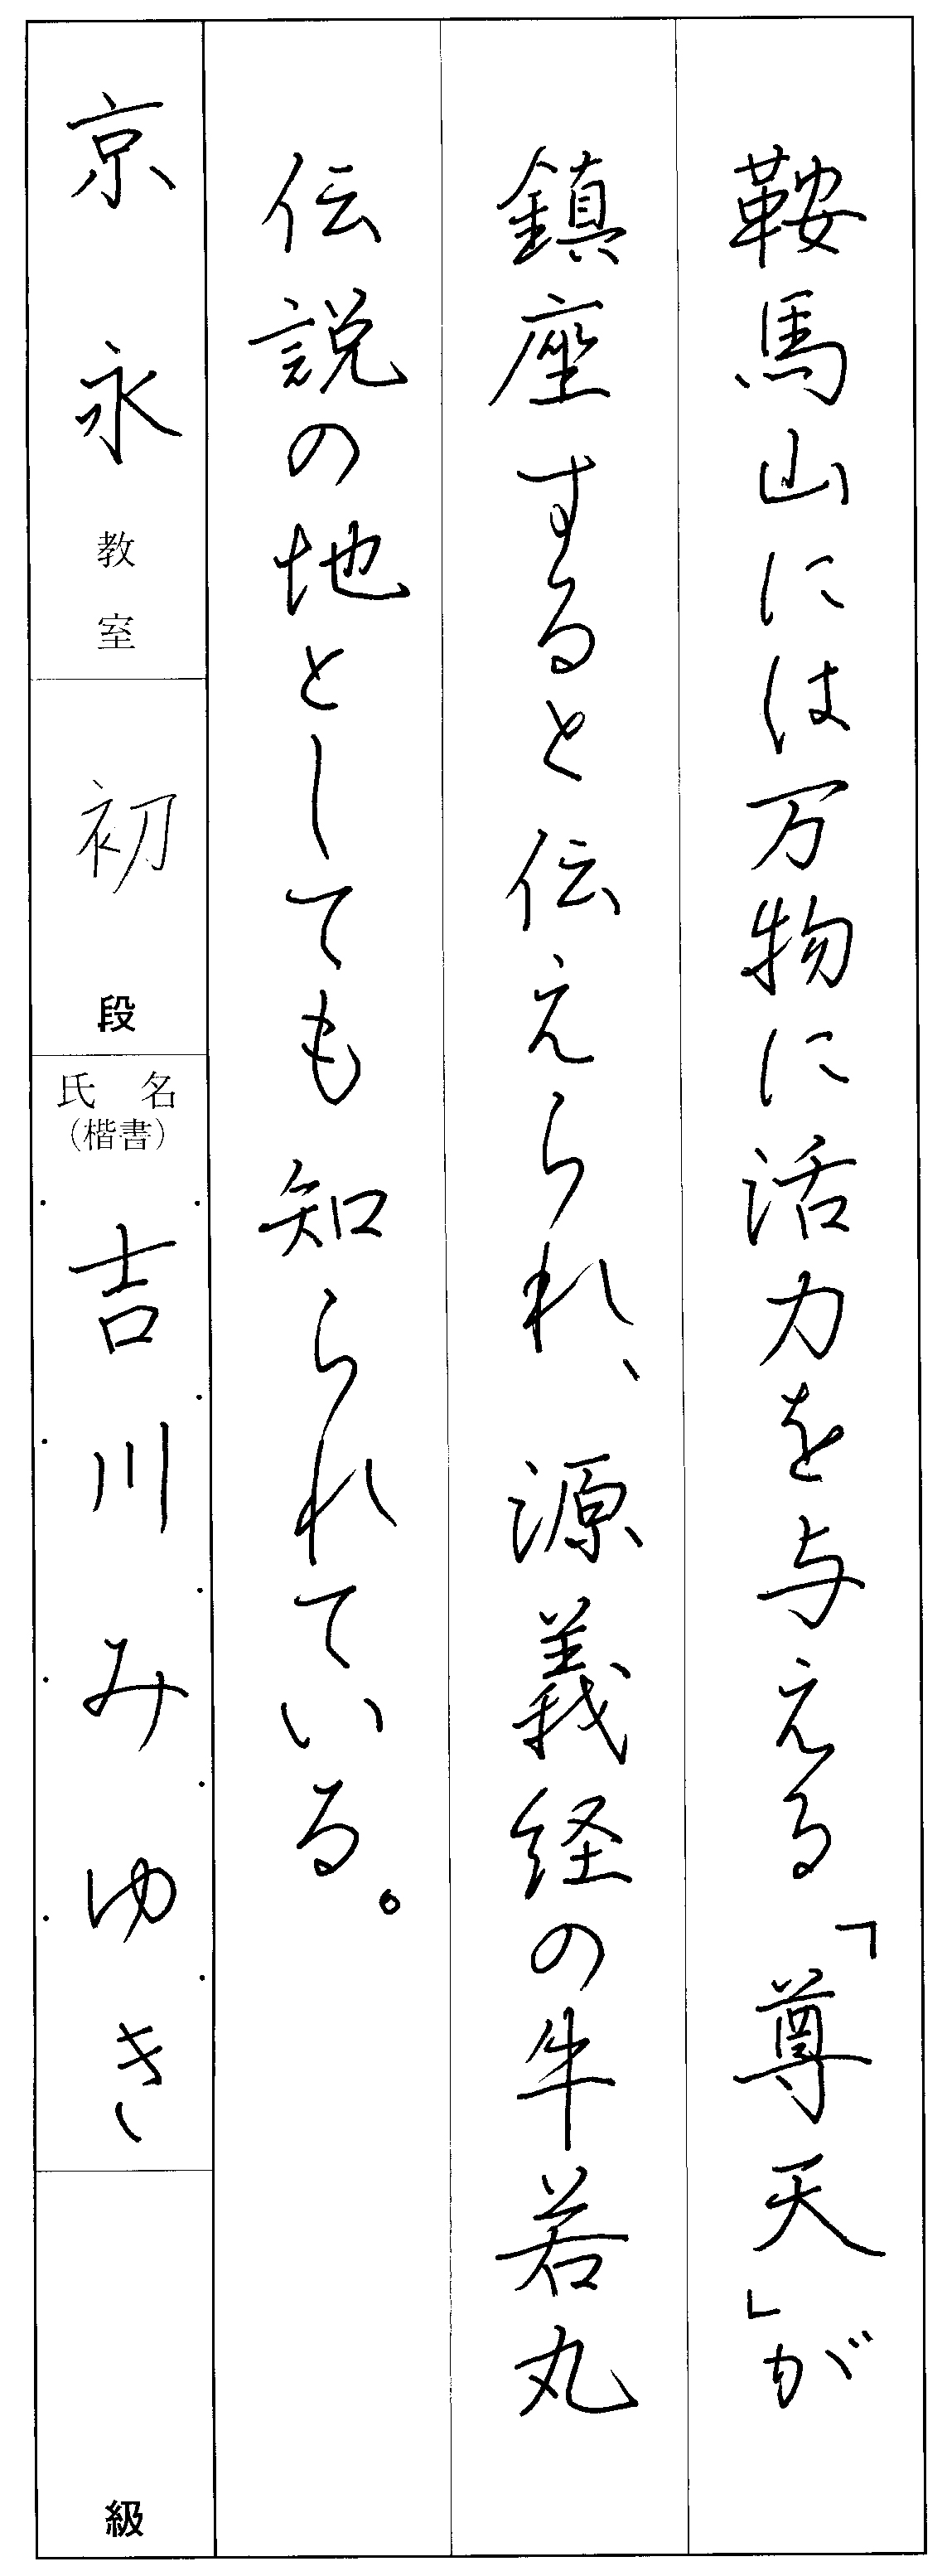 鞍馬山には万物に活力を与える「尊天」が
鎮座すると伝えられ、源義経の牛若丸
伝説の地としても知られている。
京永教室
初段
氏名
（楷書）
吉川みゆき
級